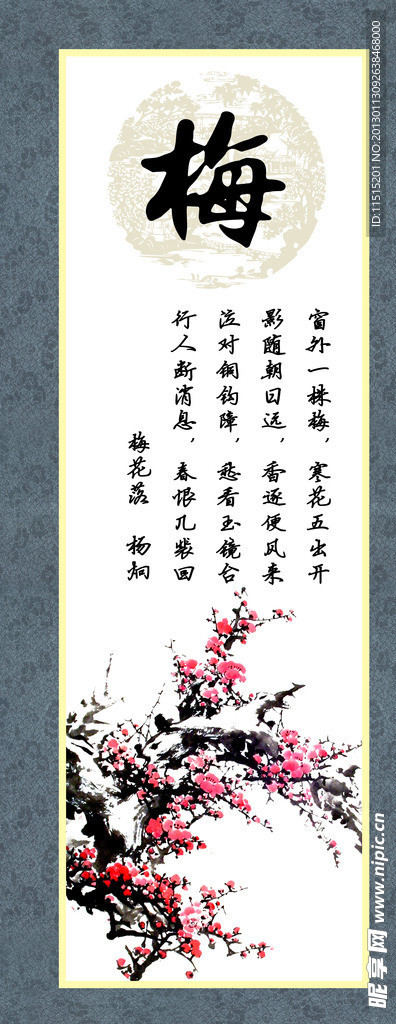 梅
窗外一株梅，寒花五出开
影随朝日远，香逐便风来
泣对铜钩障，愁看玉镜台
行人断消息，春恨几裴回
梅花落 杨炯
ID:11515201 NO:20130113092638468000
昵享网 www.nipic.cn